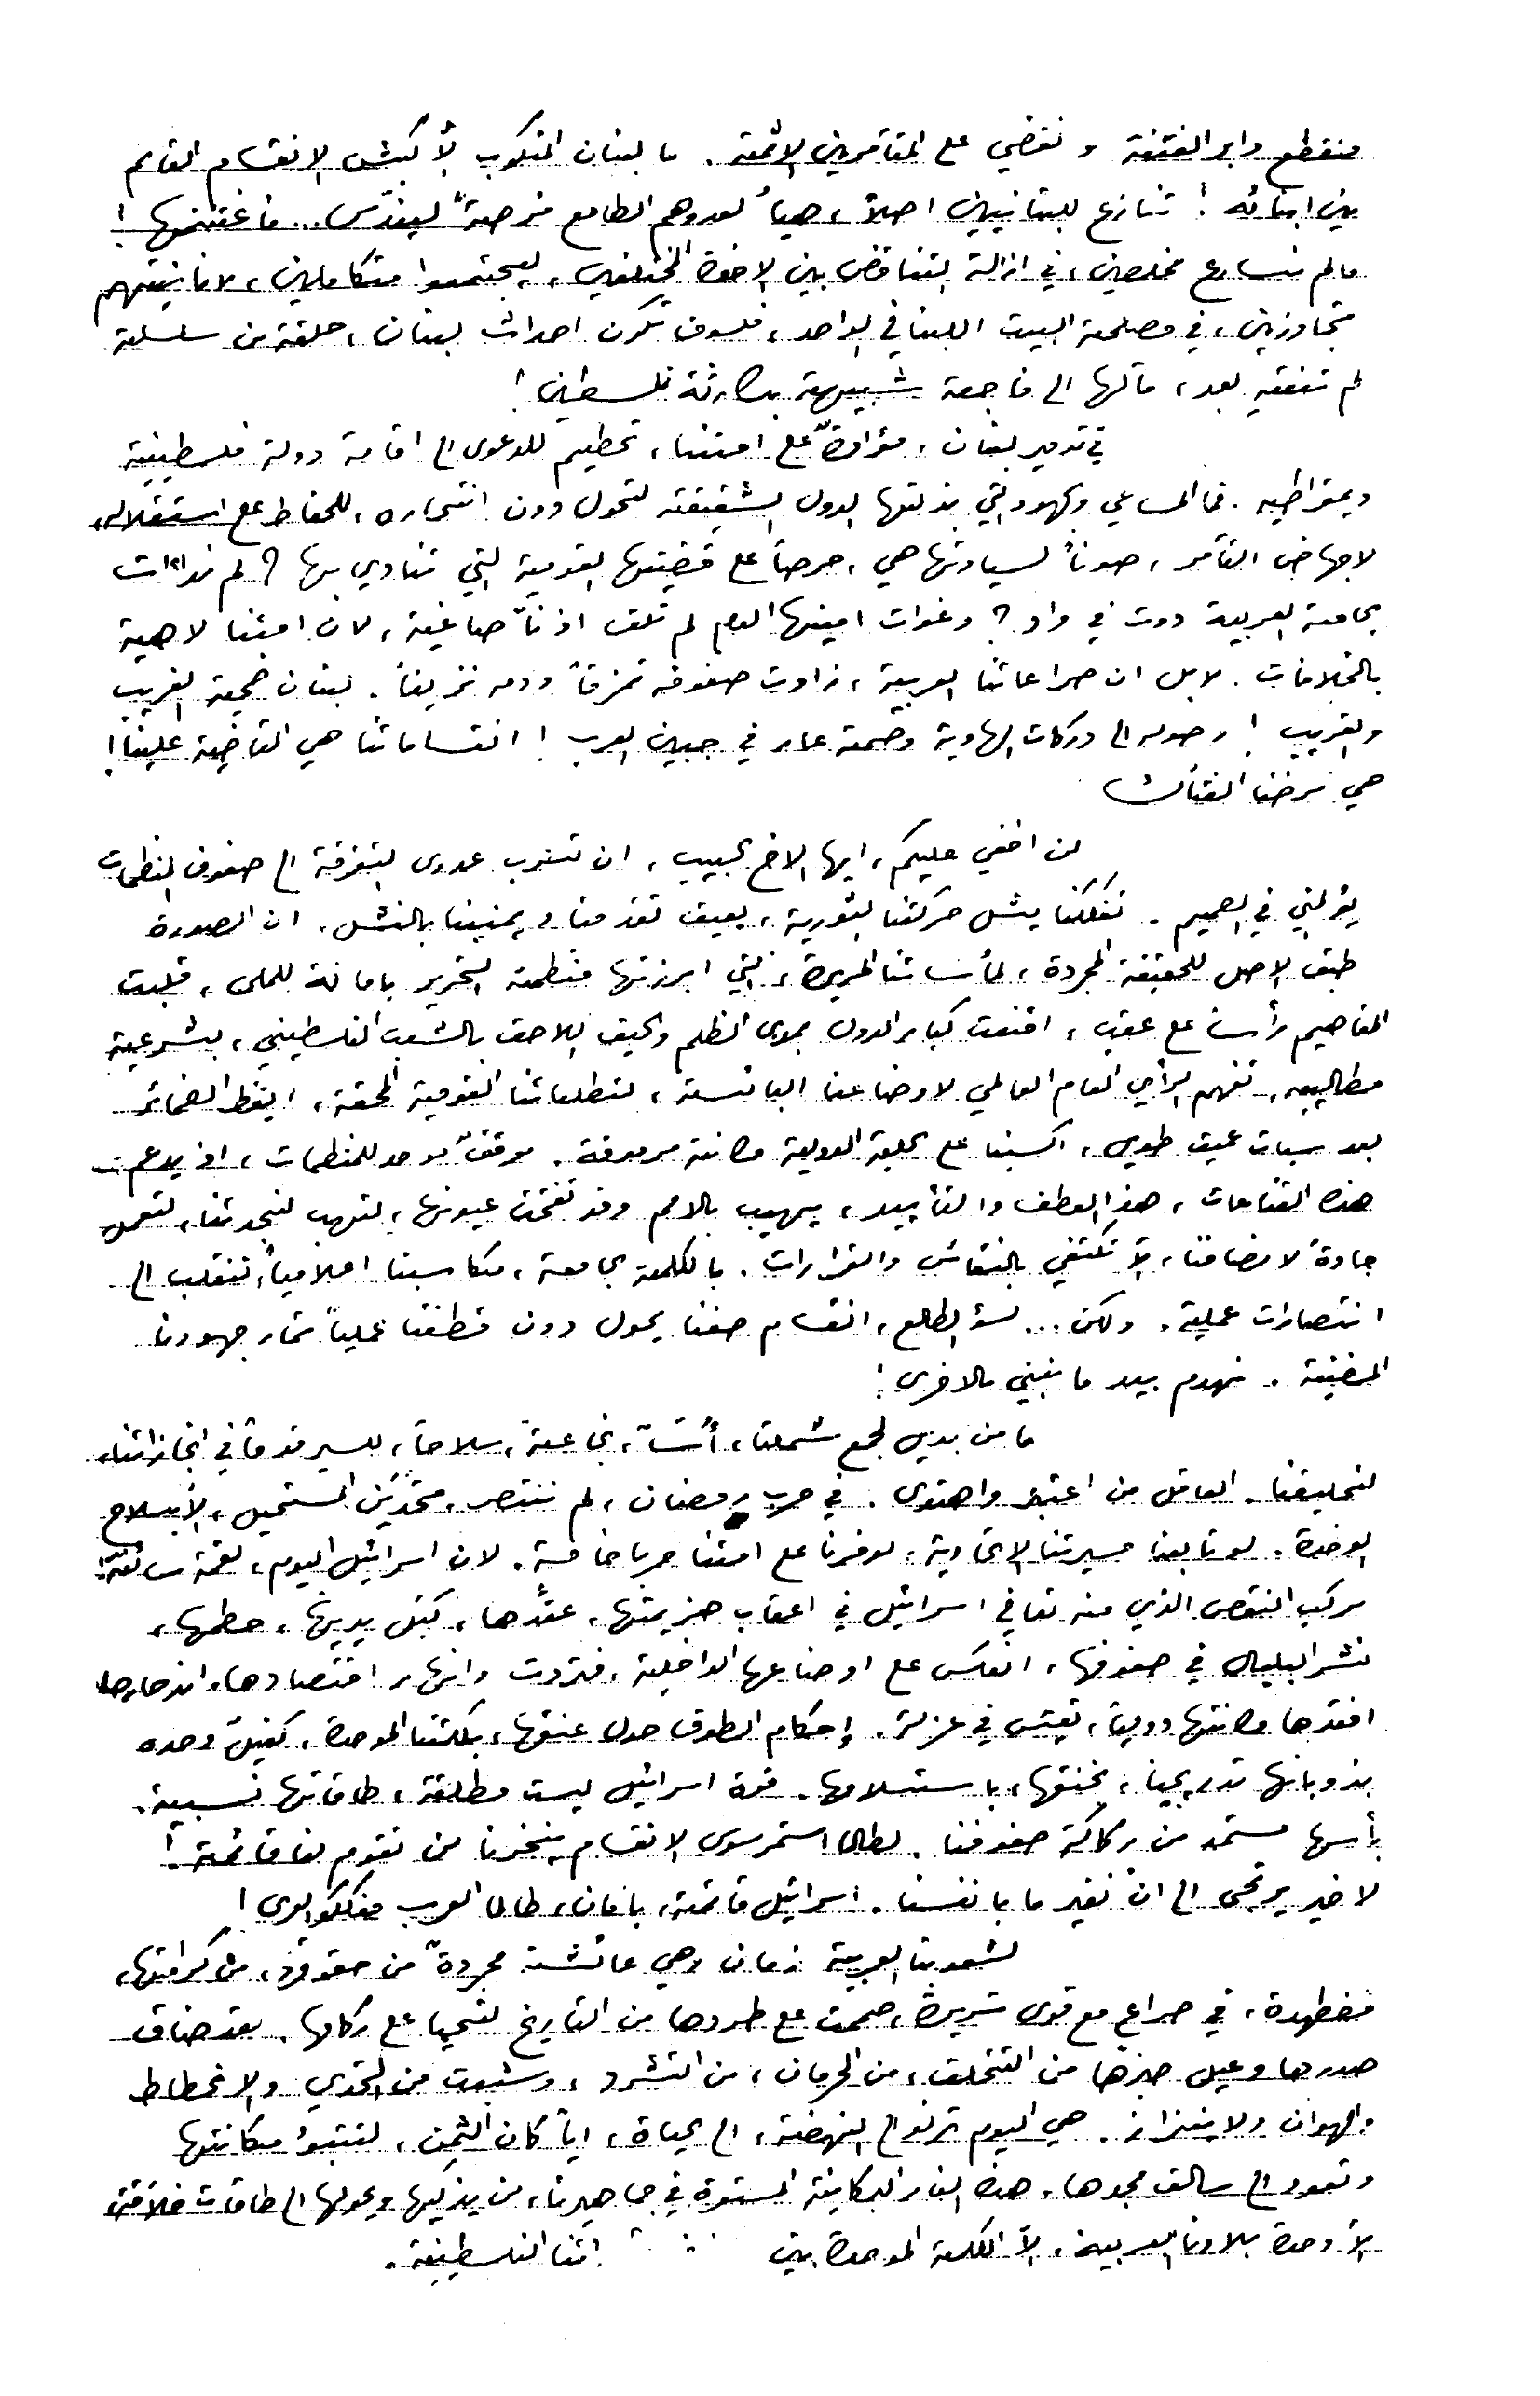 فنقطع دابر الفتنة ونقضي على المتآمرين الاثمة. ما لبنان المنكوب إلا كبش الانقسام القائم
بين ابنائه! تنازع للبنانيين اصلاً، هيأ لعدوهم الطامع فرصة ليفترس... فاغتنمها!
ما لم نسارع مخلصين، في ازالة التناقض بين الاخوة المختلفين، ليجتمعوا متكاملين، لانانيتهم
متجاوزين، في مصلحة البيت اللبناني الواحد، فلسوف تكون احداث لبنان، حلقة من سلسلة
لم تنته بعد، مآلها الى فاجعة شبيهة بكارثة فلسطين!
في تدمير لبنان، مؤامرة على امتنا، تحطيم للدعوى الى اقامة دولة فلسطينية
ديمقراطيه. فما المساعي والجهود التي بذلتها الدول الشقيقة لتحول دون انتحاره، للحفاظ على استقلاله،
لاجهاض التآمر، صوناً لسيادتها هي، حرصاً على قضيتها القومية التي تنادي بها؟ لم نداءات
الجامعة العربية دوت في واد؟ دعوات امينها العام لم تلق اذناً صاغية، لان امتنا لاهية
بالخلافات. لا بل ان صراعاتنا العربية، زادت صفوفه تمزقاً ودمه نزيفاً. لبنان ضحية الغريب
والقريب! وصوله الى دركات الهاوية وصمة عار في جبين العرب! انقساماتنا هي القاضية علينا!
هي مرضنا الفتاك
لن اخفي عليكم، ايها الاخ الحبيب، ان تسرب عدوى التفرقة الى صفوف المنظمات
يؤلمني في الصميم. تفككنا يشل حركتنا الثورية، يعيق تقدمنا ويمنينا بالفشل. ان الصورة
طبق الاصل للحقيقة المجردة، لمأساتنا المريرة، التي ابرزتها منظمة التحرير بامانة للملى، قلبت
المفاهيم رأساً على عقب، اقنعت كبار الدول بمدى الظلم والحيف اللاحق بالشعب الفلسطيني، بشرعية
مطاليبه. تفهم الرأي العام العالمي لاوضاعنا البائسة، لتطلعاتنا القومية المحقة، ايقظ الضمائر
بعد سبات عميق طويل، اكسبنا على الحلبة الدولية مكانة مرموقة. موقف موحد للمنظمات، اذ يدعم
هذه القناعات، هذا العطف والتأييد، يهيب بالامم وقد تفتحت عيونها، لتهب لنجدتنا، لتعمل
جادة لانصافنا، لا تكتفي بالنقاش والقرارات. بالكلمة الجامعة، مكاسبنا اعلامياً، تنقلب الى
انتصارات عملية. ولكن... لسؤ الطالع، انقسام صفنا يحول دون قطفنا عملياً ثمار جهودنا
المضنية. نهدم بيد ما نبني بالاخرى!
ما من بديل لجمع شملنا، أُسّاً، نجاعةً، سلاحاً، للسير قدماً في انجازاتنا،
لتحليقنا. العاقل من اعتبر واهتدى. في حرب رمضان، لم ننتصر، متحدّين المستحيل، إلا بسلاح
الوحدة. لو تابعنا مسيرتنا الاتحادية، لوفرنا على امتنا حربا خامسة. لان اسرائيل اليوم، لقمة سائغة!
مركب النقص الذي منه تعاني اسرائيل في اعقاب هزيمتها، عقّدها، كبّل يديها، حطمها،
نشر البلبال في صفوفها، انعكس على اوضاعها الداخلية، فتردت وانهار اقتصادها. اندحارها
افقدها مكانتها دولياً، تعيش في عزلة. إحكام الطوق حول عنقها، بكلمتنا الموحدة، كفيل وحده
بذوبانها تدريجياً، بخنقها، باستسلامها. قوة اسرائيل ليست مطلقة، طاقاتها نسبية.
بأسها مستمد من ركاكة صفوفنا. لطالما استمر سوس الانقسام ينخرنا لن تقوم لنا قائمة.
لا خير يرتجى الى ان نغير ما بانفسنا. اسرائيل قائمة، بامان، طالما العرب مفككو العرى!
لشعوبنا العربية زمان وهي عائشة مجردة من حقوقها، من كرامتها،
مضطهدة، في صراع مع قوى شريرة، صممت على طردها من التاريخ لتحيا على ركامها. لقد ضاق
صدرها وعيل صبرها من التخلف، من الحرمان، من التشرد، وشبعت من التحدي والانحطاط
والهوان والابتزاز. هي اليوم ترنو الى النهضة، الى الحياة، اياً كان الثمن، لتتبوأ مكانتها
وتعود الى سالف مجدها. هذه النار البركانية المستعرة في جماهيرنا، من يذكيها ويحولها الى طاقات خلاقة
إلا وحدة بلادنا العربية، إلا الكلمة الموحدة بين اتنا الفلسطينية.